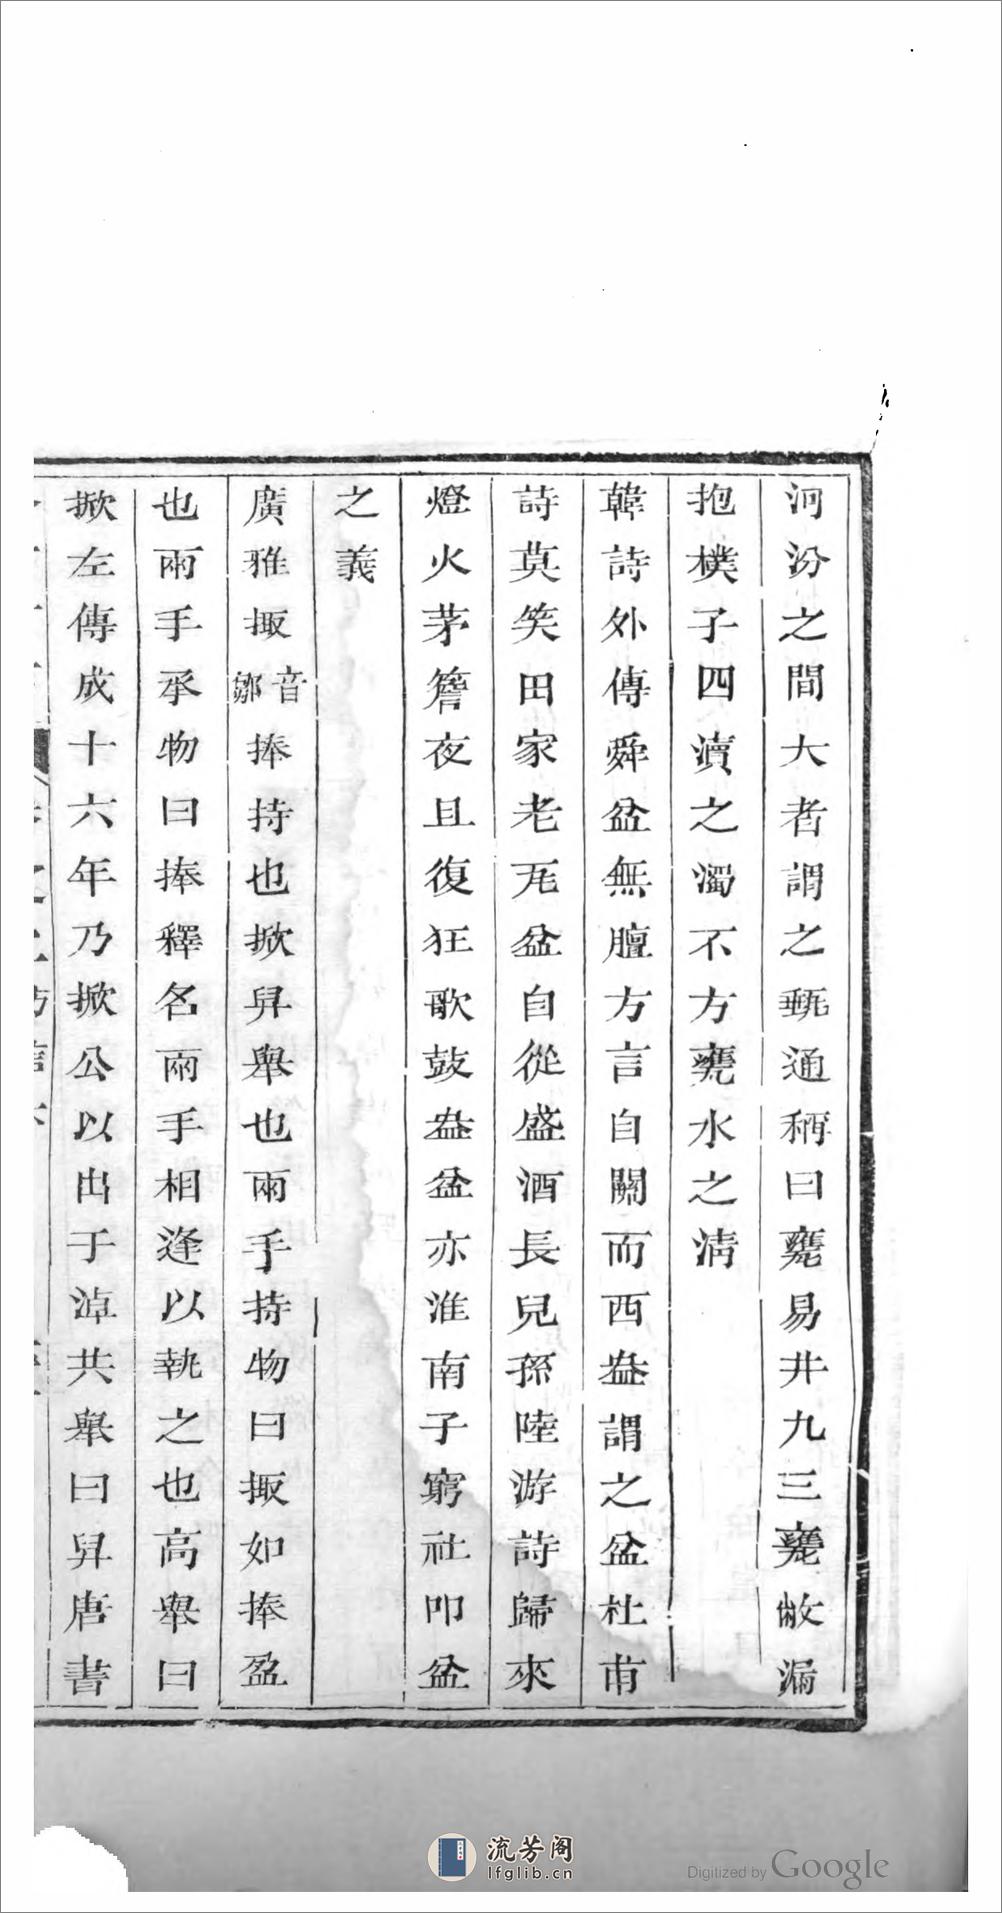 河汾之間大者謂之㼚通稱曰甕易井九三甕敝漏
抱樸子四瀆之濁不方甕水之淸
韓詩外傳舜盆無膻方言自關而西盎謂之盆杜甫
詩莫笑田家老瓦盆自從盛酒長兒孫陸游詩歸來
燈火茅簷夜且復狂歌鼓盎盆亦淮南子窮社叩盆
之義
廣雅掫音鄒捧持也掀舁舉也兩手持物曰掫如捧盈
也兩手承物曰捧釋名兩手相逢以執之也高舉曰
掀左傳成十六年乃掀公以出于淖共舉曰舁唐書
流芳阁
lfglib.cn
Digitized by Google